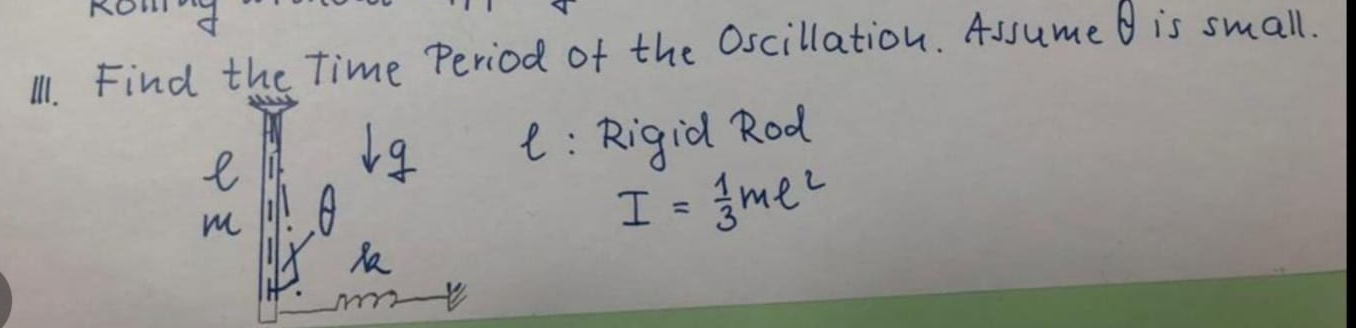 Rolling without
III. Find the Time Period of the Oscillation. Assume θ is small.
l ↓g l : Rigid Rod
m θ I = 1/3 ml²
k